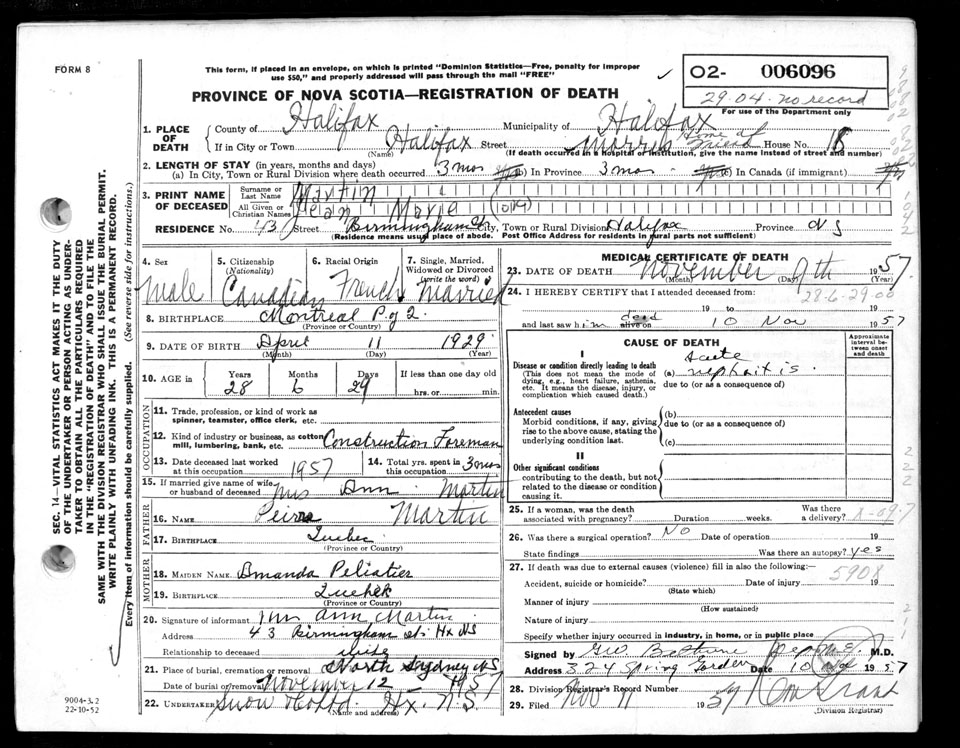 FORM 8
This form, if placed in an envelope, on which is printed "Dominion Statistics—Free, penalty for improper
use $50," and properly addressed will pass through the mail "FREE"
O2- 006096
29.04. no record
For use of the Department only
PROVINCE OF NOVA SCOTIA—REGISTRATION OF DEATH
1. PLACE OF DEATH
County of Halifax Municipality of Halifax
If in City or Town Halifax (Name) Street Morris home of friend House No. 18
(If death occurred in a hospital or institution, give the name instead of street and number)
2. LENGTH OF STAY (in years, months and days)
(a) In City, Town or Rural Division where death occurred 3 mos (b) In Province 3 mos (c) In Canada (if immigrant)
3. PRINT NAME OF DECEASED
Surname or Last Name Martin
All Given or Christian Names Jean Marie
RESIDENCE No. 43 Street Birmingham St City, Town or Rural Division Halifax Province N S
(Residence means usual place of abode. Post Office Address for residents in rural parts not sufficient)
4. SEX Male
5. CITIZENSHIP (Nationality) Canadian
6. RACIAL ORIGIN French
7. Single, Married, Widowed or Divorced (write the word) Married
8. BIRTHPLACE Montreal P Q
(Province or Country)
9. DATE OF BIRTH April 11 1929
(Month) (Day) (Year)
10. AGE IN Years 28 Months 6 Days 29 If less than one day old hrs. or min.
OCCUPATION
11. Trade, profession, or kind of work as spinner, teamster, office clerk, etc.
12. Kind of industry or business, as cotton mill, lumbering, bank, etc. Construction Foreman
13. Date deceased last worked at this occupation 1957
14. Total yrs. spent in this occupation 3 mos
15. If married give name of wife or husband of deceased Mrs Ann Martin
FATHER
16. NAME Martin
17. BIRTHPLACE Quebec
(Province or Country)
MOTHER
18. MAIDEN NAME Amanda
19. BIRTHPLACE Quebec
(Province or Country)
20. Signature of informant Mrs Ann Martin
Address 43 Birmingham St. Hx NS
Relationship to deceased wife
21. Place of burial, cremation or removal North Sydney NS
Date of burial or removal November 12 1957
22. UNDERTAKER Snow Hx. N.S.
(Name and address)
MEDICAL CERTIFICATE OF DEATH
23. DATE OF DEATH November 9th 1957
(Month) (Day) (Year)
24. I HEREBY CERTIFY that I attended deceased from:
28-6-29-00
19 to 19
and last saw him dead alive on 10 Nov 1957
CAUSE OF DEATH
Approximate interval between onset and death
I
Disease or condition directly leading to death
(This does not mean the mode of dying, e.g., heart failure, asthenia, etc. It means the disease, injury, or complication which caused death.)
(a) acute nephritis
due to (or as a consequence of)
Antecedent causes
Morbid conditions, if any, giving rise to the above cause, stating the underlying condition last.
(b)
due to (or as a consequence of)
(c)
II
Other significant conditions
contributing to the death, but not related to the disease or condition causing it.
25. If a woman, was the death associated with pregnancy? Duration weeks. Was there a delivery?
26. Was there a surgical operation? No Date of operation 19
State findings Was there an autopsy? yes
27. If death was due to external causes (violence) fill in also the following:— 5908
Accident, suicide or homicide? Date of injury 19
(State which)
Manner of injury
(How sustained)
Nature of injury
Specify whether injury occurred in industry, in home, or in public place
Signed by M.D.
Address 324 Spring Garden Date 10 Nov 1957
28. Division Registrar's Record Number
29. Filed Nov 11 1957
(Division Registrar)
SEC. 14—VITAL STATISTICS ACT MAKES IT THE DUTY
OF THE UNDERTAKER OR PERSON ACTING AS UNDERTAKER
TO OBTAIN ALL THE PARTICULARS REQUIRED
IN THE "REGISTRATION OF DEATH" AND TO FILE THE
SAME WITH THE DIVISION REGISTRAR WHO SHALL ISSUE THE BURIAL PERMIT.
WRITE PLAINLY WITH UNFADING INK. THIS IS A PERMANENT RECORD.
Every item of information should be carefully supplied. (See reverse side for instructions.)
9004-3.2
22-10-52